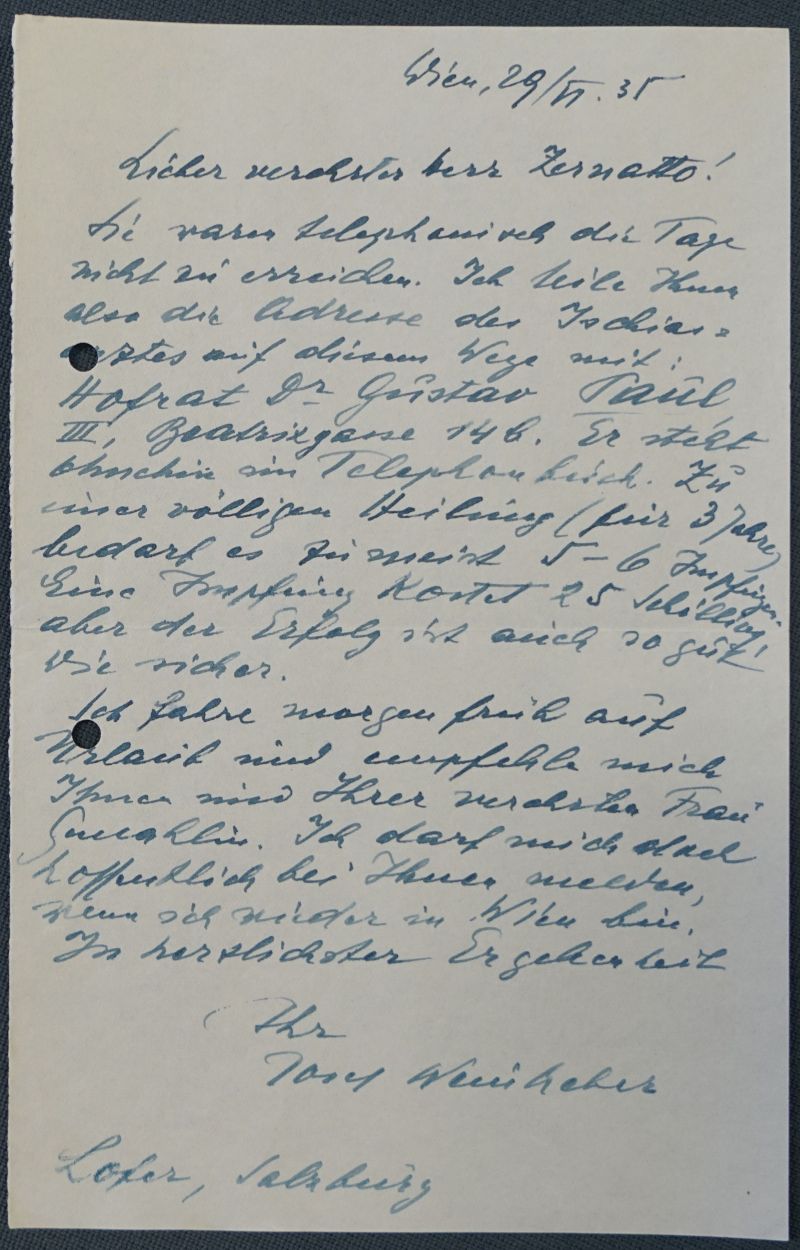 Wien, 29/VI. 35
Lieber verehrter Herr Zernatto!
Sie waren telephonisch die Tage
nicht zu erreichen. Ich teile Ihnen
also die Adresse des Ischias=
arztes auf diesem Wege mit:
Hofrat Dr Gustav Paul,
III, Beatrixgasse 14 b. Er steht
ohnehin im Telephonbuch. Zu
einer völligen Heilung (für 3 Jahre)
bedarf es zumeist 5–6 Impfungen.
Eine Impfung kostet 25 Schilling,
aber der Erfolg ist auch so gut
wie sicher.
Ich fahre morgen früh auf
Urlaub und empfehle mich
Ihnen und Ihrer verehrten Frau
Gemahlin. Ich darf mich doch
hoffentlich bei Ihnen melden,
wenn ich wieder in Wien bin.
In herzlichster Ergebenheit
Ihr
Josef Weinheber
Lofer, Salzburg